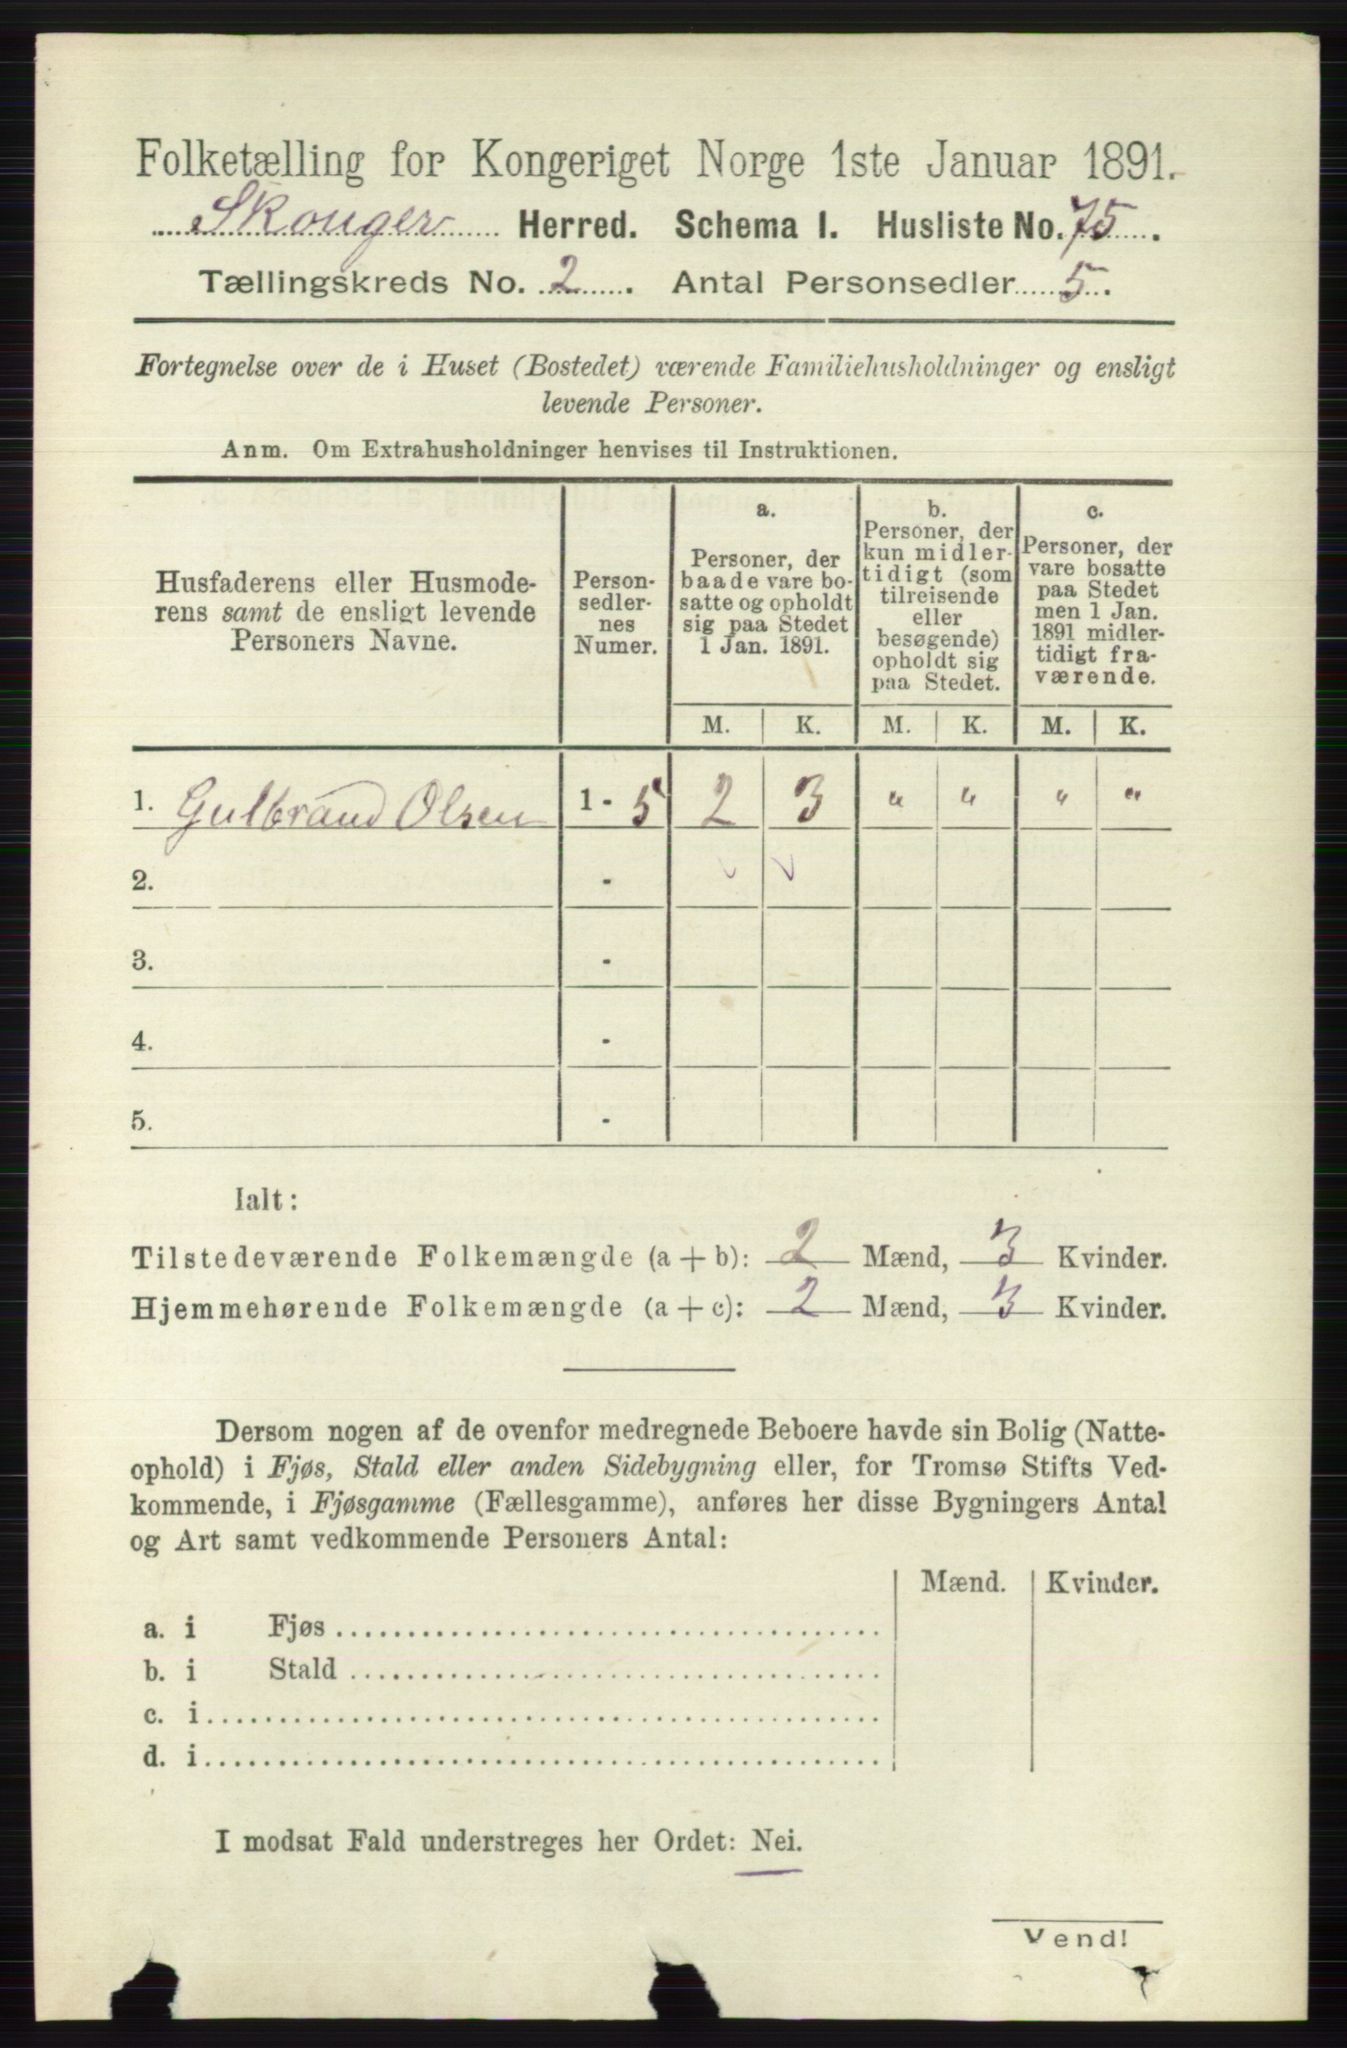 Folketælling for Kongeriget Norge 1ste Januar 1891.
Skouger Herred. Schema I. Husliste No. 75.
Tællingskreds No. 2. Antal Personsedler 5.
Fortegnelse over de i Huset (Bostedet) værende Familiehusholdninger og ensligt
levende Personer.
Anm. Om Extrahusholdninger henvises til Instruktionen.
Husfaderens eller Husmode-
rens samt de ensligt levende
Personers Navne.
Person-
sedler-
nes
Numer.
a.
Personer, der
baade vare bo-
satte og opholdt
sig paa Stedet
1 Jan. 1891.
b.
Personer, der
kun midler-
tidigt (som
tilreisende
eller
besøgende)
opholdt sig
paa Stedet.
c.
Personer, der
vare bosatte
paa Stedet
men 1 Jan.
1891 midler-
tidigt fra-
værende.
M. K. M. K. M. K.
1. Gulbrand Olsen 1 - 5 2 3 " " " "
2. -
3. -
4. -
5. -
Ialt:
Tilstedeværende Folkemængde (a + b): 2 Mænd, 3 Kvinder.
Hjemmehørende Folkemængde (a + c): 2 Mænd, 3 Kvinder.
Dersom nogen af de ovenfor medregnede Beboere havde sin Bolig (Natte-
ophold) i Fjøs, Stald eller anden Sidebygning eller, for Tromsø Stifts Ved-
kommende, i Fjøsgamme (Fællesgamme), anføres her disse Bygningers Antal
og Art samt vedkommende Personers Antal:
Mænd. Kvinder.
a. i Fjøs
b. i Stald
c. i
d. i
I modsat Fald understreges her Ordet: Nei.
Vend!